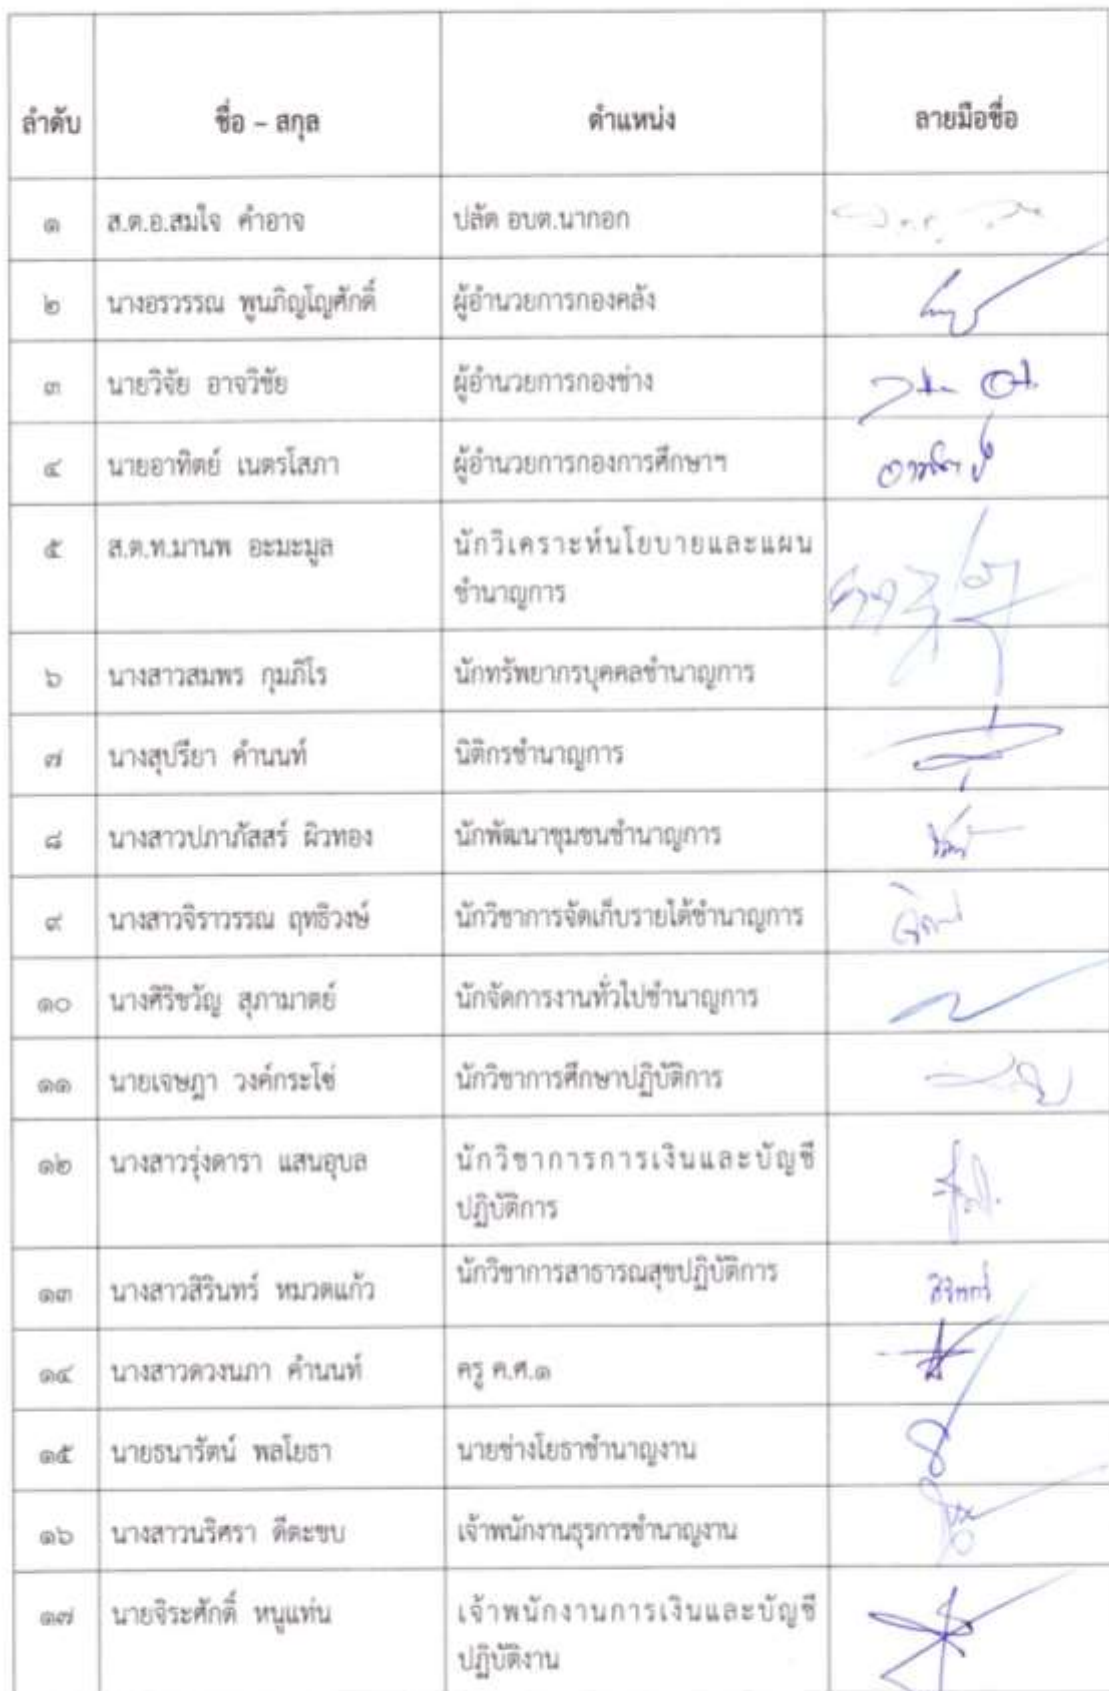 ลำดับ ชื่อ – สกุล ตำแหน่ง ลายมือชื่อ
๑ ส.ต.อ.สมใจ คำอาจ ปลัด อบต.นากอก
๒ นางอรวรรณ พูนภิญโญศักดิ์ ผู้อำนวยการกองคลัง
๓ นายวิจัย อาจวิชัย ผู้อำนวยการกองช่าง
๔ นายอาทิตย์ เนตรโสภา ผู้อำนวยการกองการศึกษาฯ
๕ ส.ต.ท.มานพ อะมะมูล นักวิเคราะห์นโยบายและแผน
ชำนาญการ
๖ นางสาวสมพร กุมภิโร นักทรัพยากรบุคคลชำนาญการ
๗ นางสุปรียา คำนนท์ นิติกรชำนาญการ
๘ นางสาวปภาภัสสร์ ผิวทอง นักพัฒนาชุมชนชำนาญการ
๙ นางสาวจิราวรรณ ฤทธิวงษ์ นักวิชาการจัดเก็บรายได้ชำนาญการ
๑๐ นางศิริขวัญ สุภามาตย์ นักจัดการงานทั่วไปชำนาญการ
๑๑ นายเจษฎา วงค์กระโซ่ นักวิชาการศึกษาปฏิบัติการ
๑๒ นางสาวรุ่งดารา แสนอุบล นักวิชาการการเงินและบัญชี
ปฏิบัติการ
๑๓ นางสาวสิรินทร์ หมวดแก้ว นักวิชาการสาธารณสุขปฏิบัติการ สิรินทร์
๑๔ นางสาวดวงนภา คำนนท์ ครู ค.ศ.๑
๑๕ นายธนารัตน์ พลโยธา นายช่างโยธาชำนาญงาน
๑๖ นางสาวนริศรา ดีตะขบ เจ้าพนักงานธุรการชำนาญงาน
๑๗ นายจิระศักดิ์ หนูแท่น เจ้าพนักงานการเงินและบัญชี
ปฏิบัติงาน